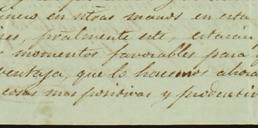 en ntras manos en esta
pralmente este
momentos favorables para
ventaja, que lo hacemos ahora
cosas mas positivas y productiv